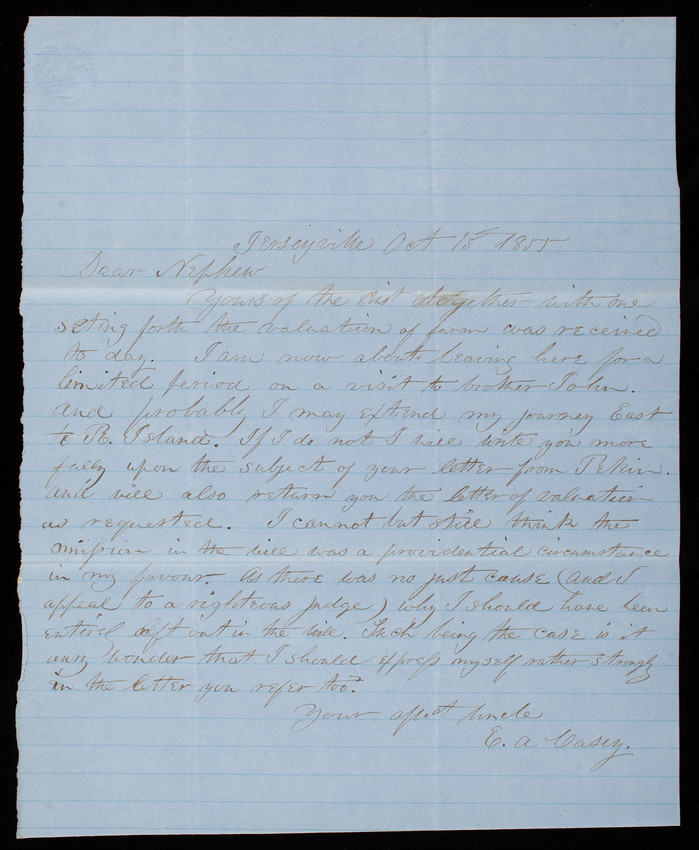 Jerseyville Oct 13th 1855
Dear Nephew
Yours of the altogether with one
setting forth the valuation of farm was received
to day. I am now about leaving here for a
limited period on a visit to brother John.
and probably I may extend my journey East
to R. Island. If I do not I will write you more
fully upon the subject of your letter from Pekin.
and will also return you the letter of valuation
as requested. I cannot but still think the
omission in the will was a providential circumstance
in my favour. As there was no just cause (and I
appeal to a righteous judge) why I should have been
entirel left out in the will. Such being the case is it
any wonder that I should express myself rather strongly
in the letter you refer too?
Your afect Uncle
E. A Casey.